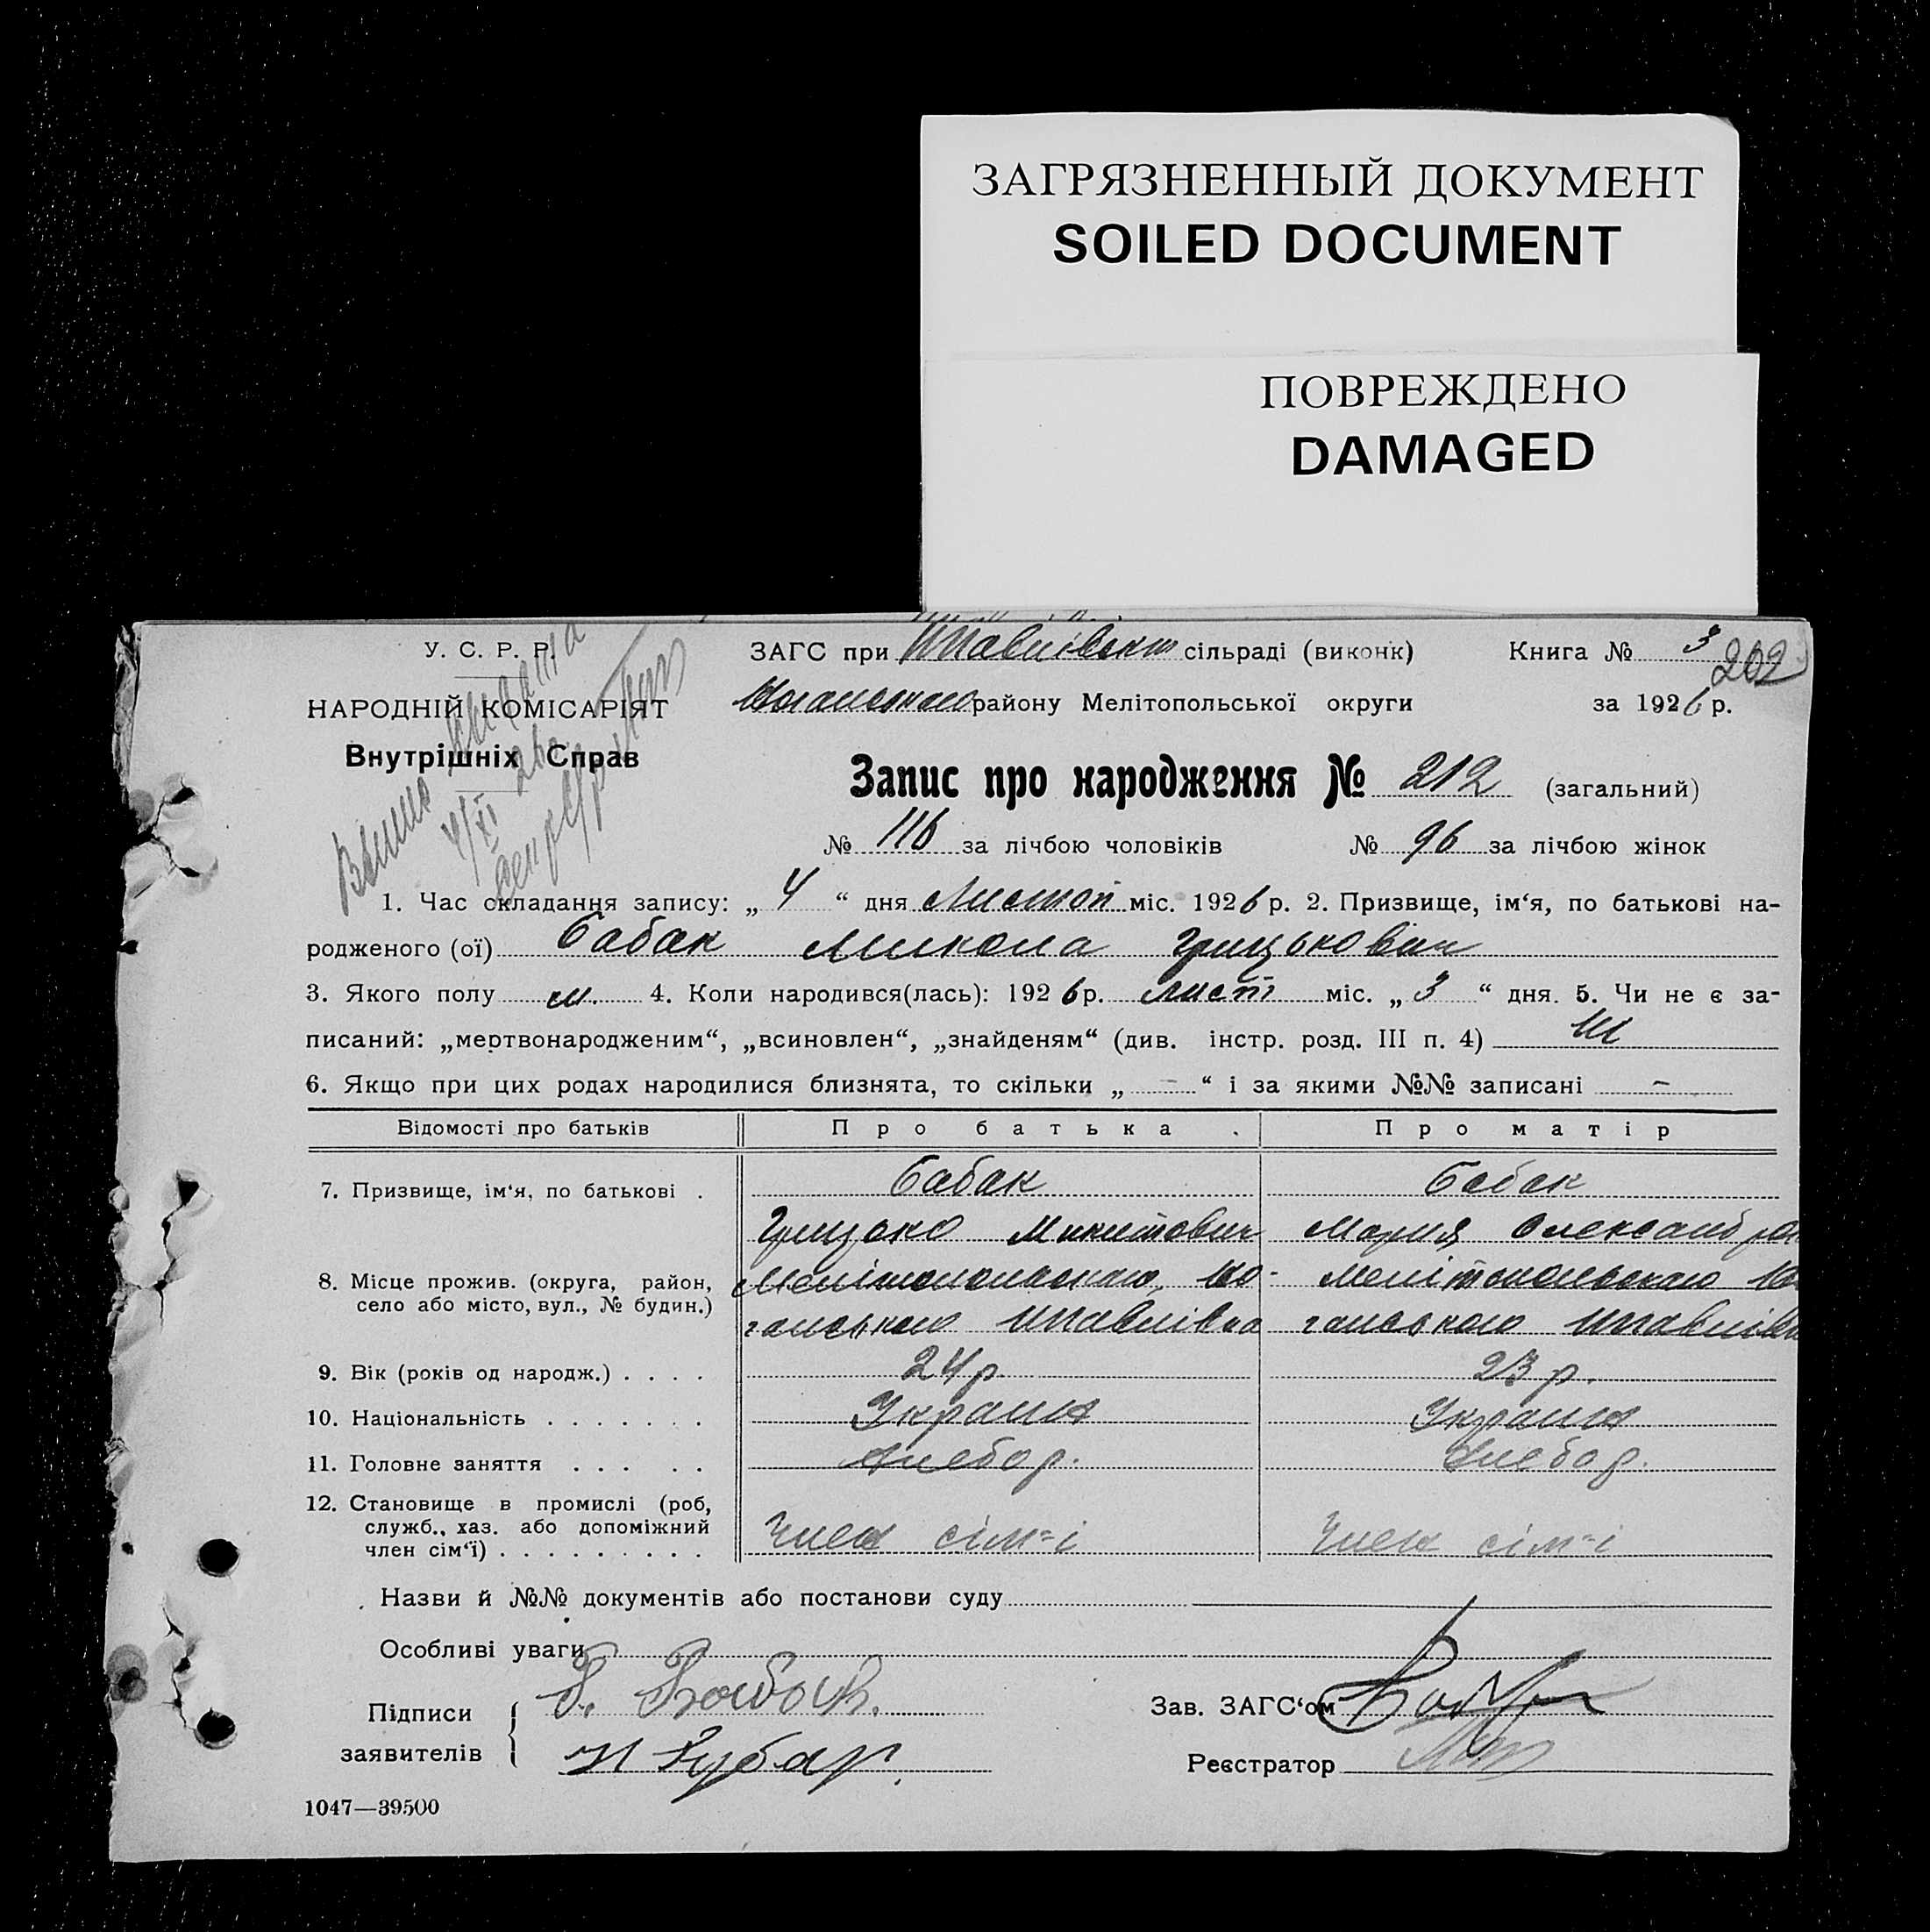 ЗАГРЯЗНЕННЫЙ ДОКУМЕНТ
SOILED DOCUMENT
ПОВРЕЖДЕНО
DAMAGED
У. С. Р. Р.
НАРОДНІЙ КОМІСАРІЯТ
Внутрішніх Справ
ЗАГС при сільраді (виконк) Книга № 3
202
району Мелітопольської округи за 1926 р.
Запис про народження № 212 (загальний)
№ 116 за лічбою чоловіків № 96 за лічбою жінок
1. Час складання запису: „ 4 “ дня Листоп міс. 1926 р. 2. Призвище, ім‘я, по батькові на-
родженого (ої) Бабак Микола Грицькович
3. Якого полу м. 4. Коли народився(лась): 1926 р. лист міс. „ 3 “ дня. 5. Чи не є за-
писаний: „мертвонародженим“, „всиновлен“, „знайденям“ (див. інстр. розд. III п. 4)
6. Якщо при цих родах народилися близнята, то скільки „ – “ і за якими №№ записані –
Відомості про батьків Про батька Про матір
7. Призвище, ім‘я, по батькові . Бабак Бабак
Грицько Микитович Мария Олександров
8. Місце прожив. (округа, район,
село або місто, вул., № будин.)
9. Вік (років од народж.) . . . . 24 р. 23 р.
10. Національність . . . . . . . Украин Украин
11. Головне заняття . . . . . Хлебор. Хлебор.
12. Становище в промислі (роб,
служб., хаз. або допоміжний
член сім‘ї) . . . . . . . . . Член сім=і Член сім=і
Назви й №№ документів або постанови суду
Особливі уваги
Підписи
заявителів
Зав. ЗАГС‘ом
Реєстратор
1047—39500